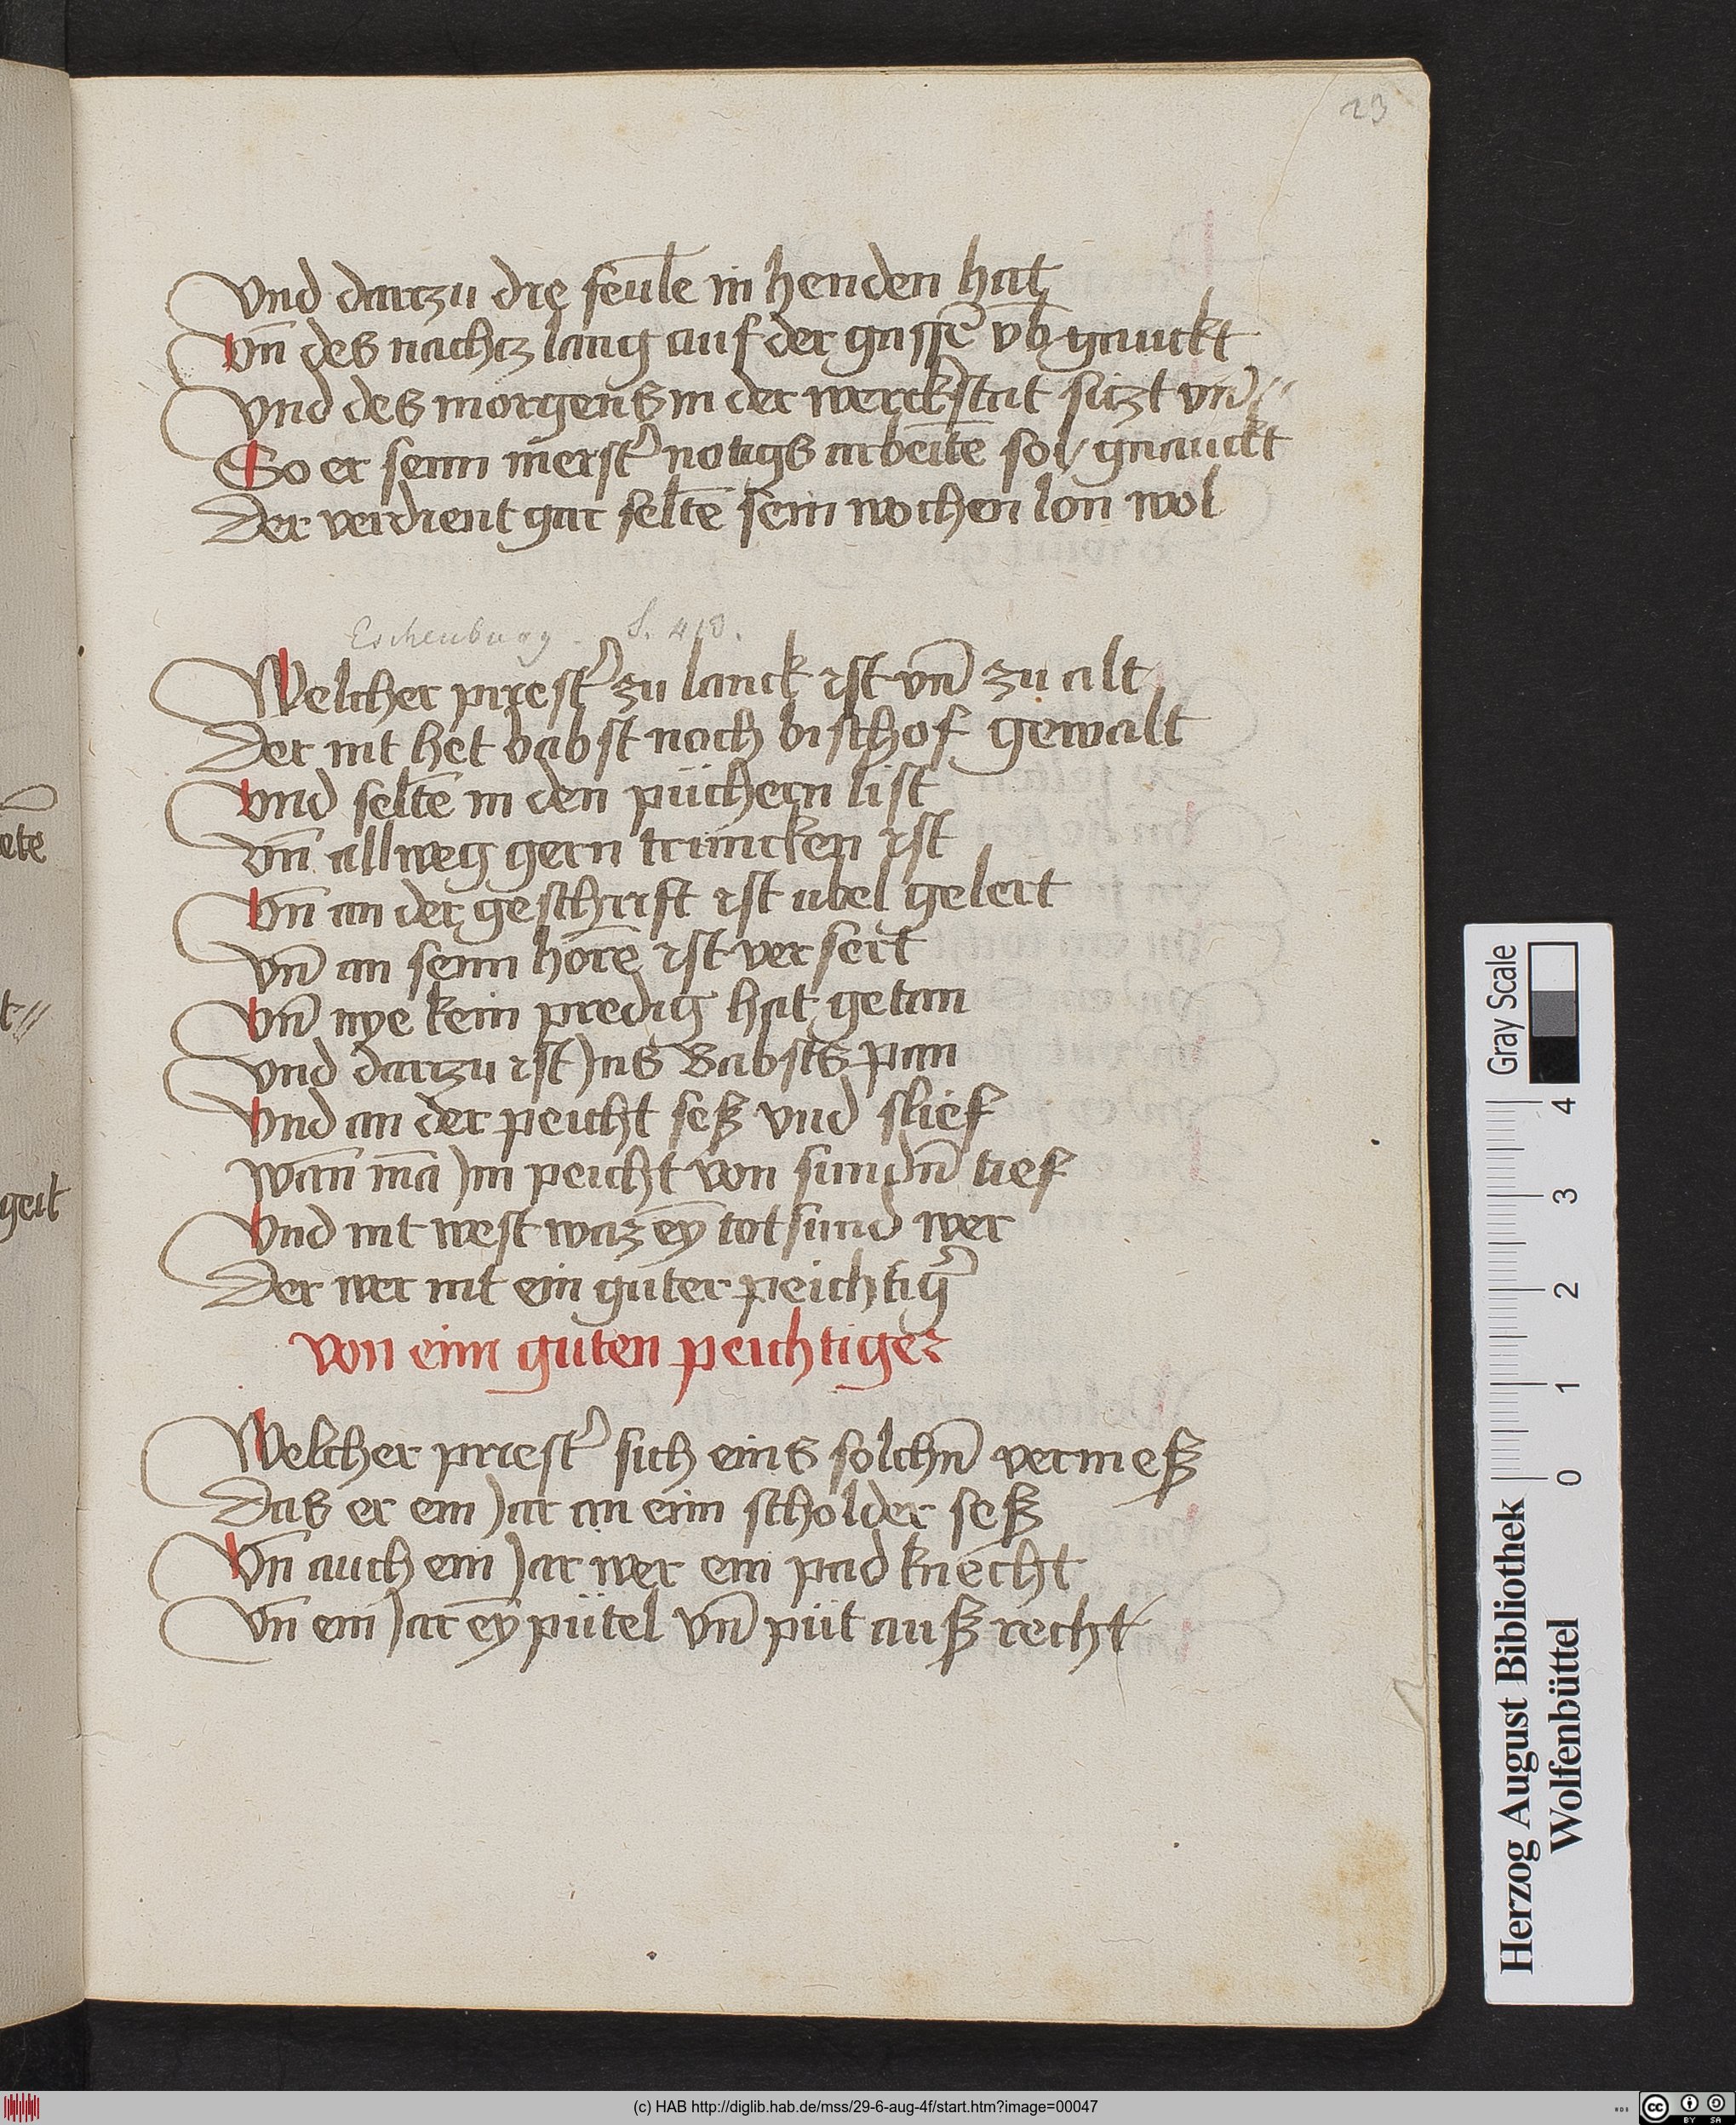 23
Vnd darzu dre seule in henden hat
Vn̄ des nachcz lang auf der gassē vb gauckt
Vnd des morgens in der werckstat siczt vn̄
So er seim meist' notigs arbeitē sol / gnauckt
Der verdient gar seltē sein wochen lon wol
Eschenburg. S. 413.
Welcher priest' zu lanck ist vn̄ zu alt
Der nit het babst noch bischof gewalt
Vnd seltē in den püchern list
Vn̄ allweg gern trincken ist
Vn̄ an der geschrift ist ubel gelert
Vn̄ an seim horē ist versert
Vn̄ nye kein predig hat getan
Vnd darzu ist Jns babsts pan
Vnd an der peicht seß vnd slief
Wan mā Jm peicht von sundn̄ tief
Vnd nit west waz eȳ totsund wer
Der wer nit ein guter peichtig'
von eim guten peichtiger
Welcher priest' sich eins solchn̄ vermeß
Das er ein Jar an eim scholder seß
Vn̄ auch ein Jar wer ein padknecht
Vn̄ ein Jar eȳ pütel vn̄ püt auß recht
etē
t//
geil
Gray Scale
4
3
2
1
0
Herzog August Bibliothek
Wolfenbüttel
(c) HAB http://diglib.hab.de/mss/29-6-aug-4f/start.htm?image=00047
cc BY SA